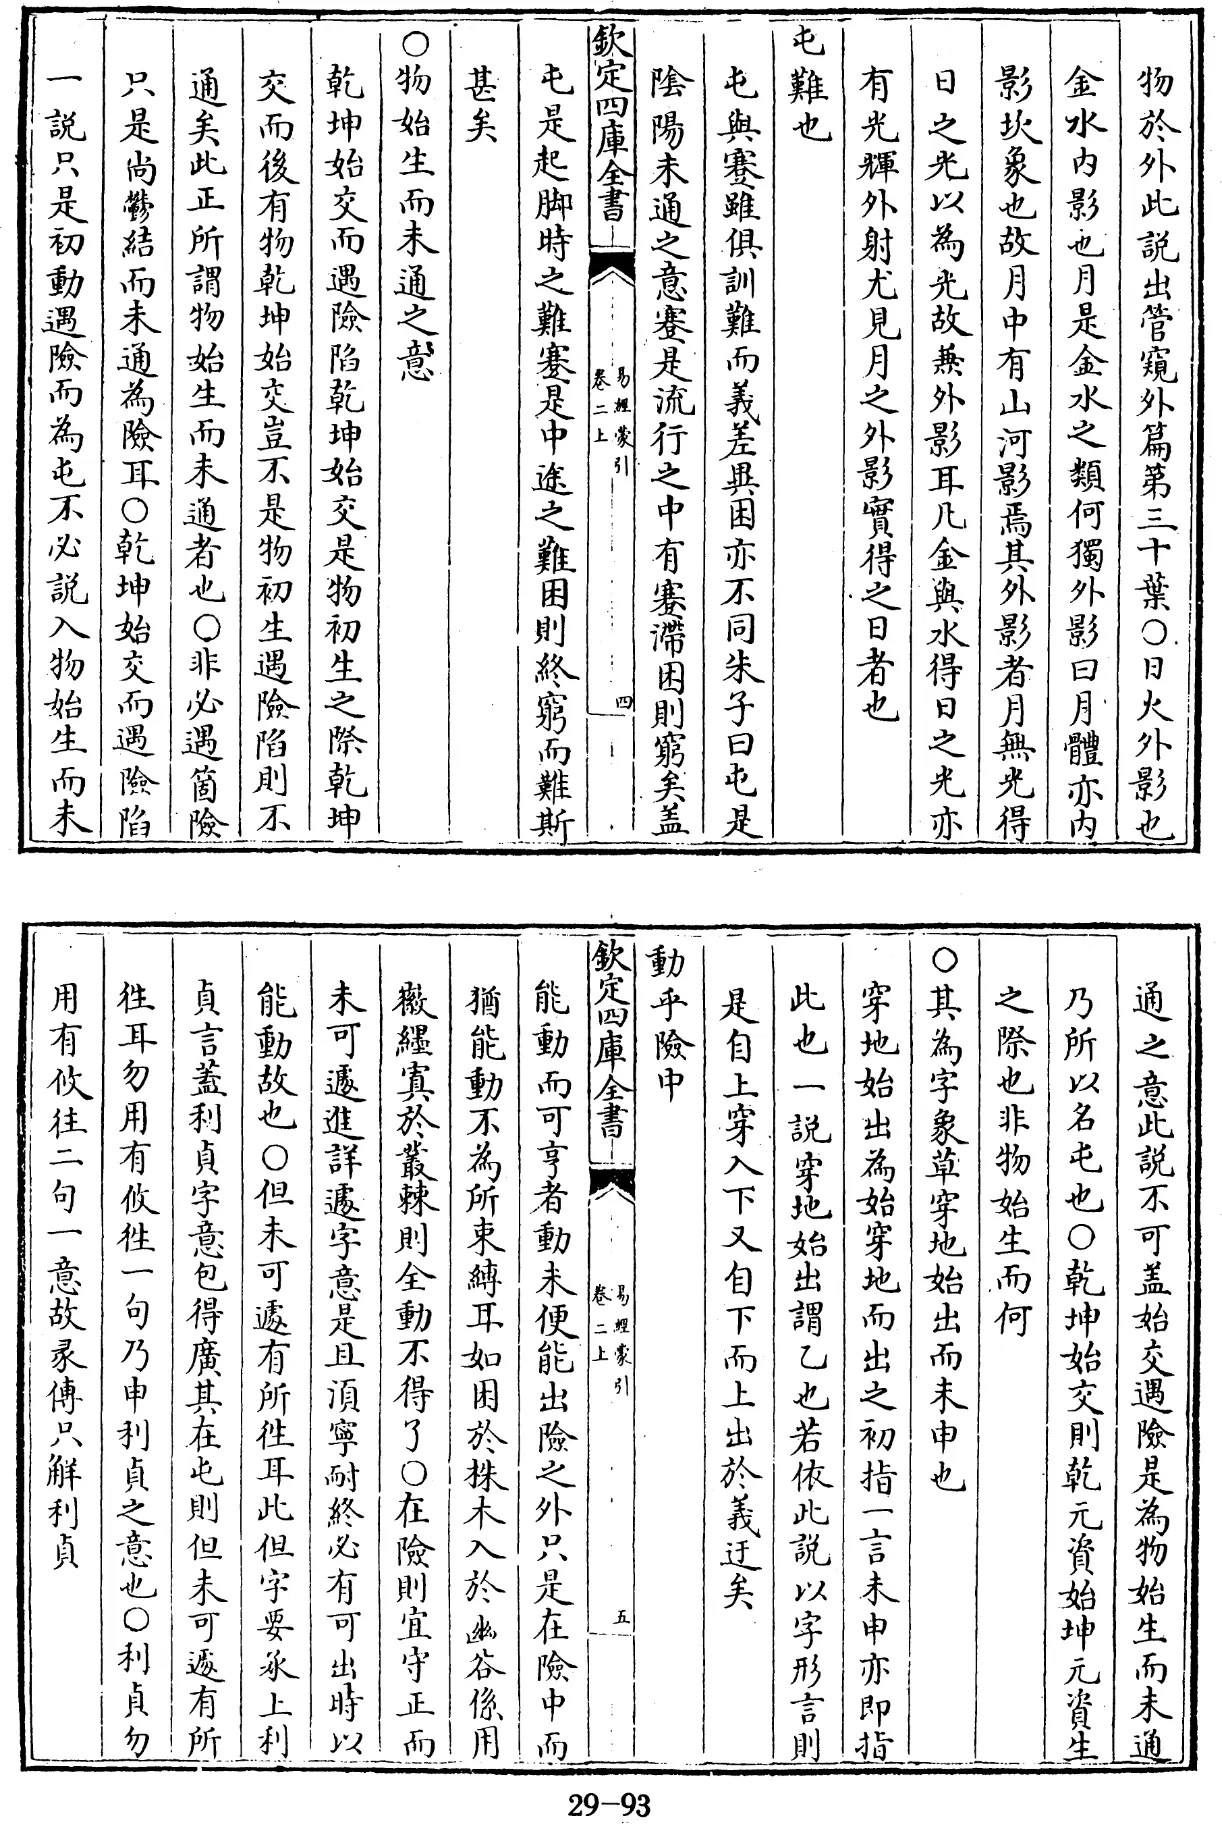 物於外此説出管窺外篇第三十葉○日火外影也
金水内影也月是金水之類何獨外影曰月體亦内
影坎象也故月中有山河影焉其外影者月無光得
日之光以為光故兼外影耳凡金與水得日之光亦
有光輝外射尤見月之外影實得之日者也
屯難也
屯與蹇雖俱訓難而義差異困亦不同朱子曰屯是
陰陽未通之意蹇是流行之中有蹇滯困則窮矣盖
欽定四庫全書
易經蒙引
卷二上
四
屯是起脚時之難蹇是中途之難困則終窮而難斯
甚矣
○物始生而未通之意
乾坤始交而遇險陷乾坤始交是物初生之際乾坤
交而後有物乾坤始交豈不是物初生遇險陷則不
通矣此正所謂物始生而未通者也○非必遇箇險
只是尚鬱結而未通為險耳○乾坤始交而遇險陷
一説只是初動遇險而為屯不必説入物始生而未
通之意此説不可盖始交遇險是為物始生而未通
乃所以名屯也○乾坤始交則乾元資始坤元資生
之際也非物始生而何
○其為字象草穿地始出而未申也
穿地始出為始穿地而出之初指一言未申亦即指
此也一説穿地始出謂乙也若依此説以字形言則
是自上穿入下又自下而上出於義迂矣
動乎險中
欽定四庫全書
易經蒙引
卷二上
五
能動而可亨者動未便能出險之外只是在險中而
猶能動不為所束縛耳如困於株木入於幽谷係用
徽纆寘於叢棘則全動不得了○在險則宜守正而
未可遽進詳遽字意是且須寧耐終必有可出時以
能動故也○但未可遽有所徃耳此但字要承上利
貞言蓋利貞字意包得廣其在屯則但未可遽有所
徃耳勿用有攸徃一句乃申利貞之意也○利貞勿
用有攸往二句一意故彖傳只解利貞
29-93